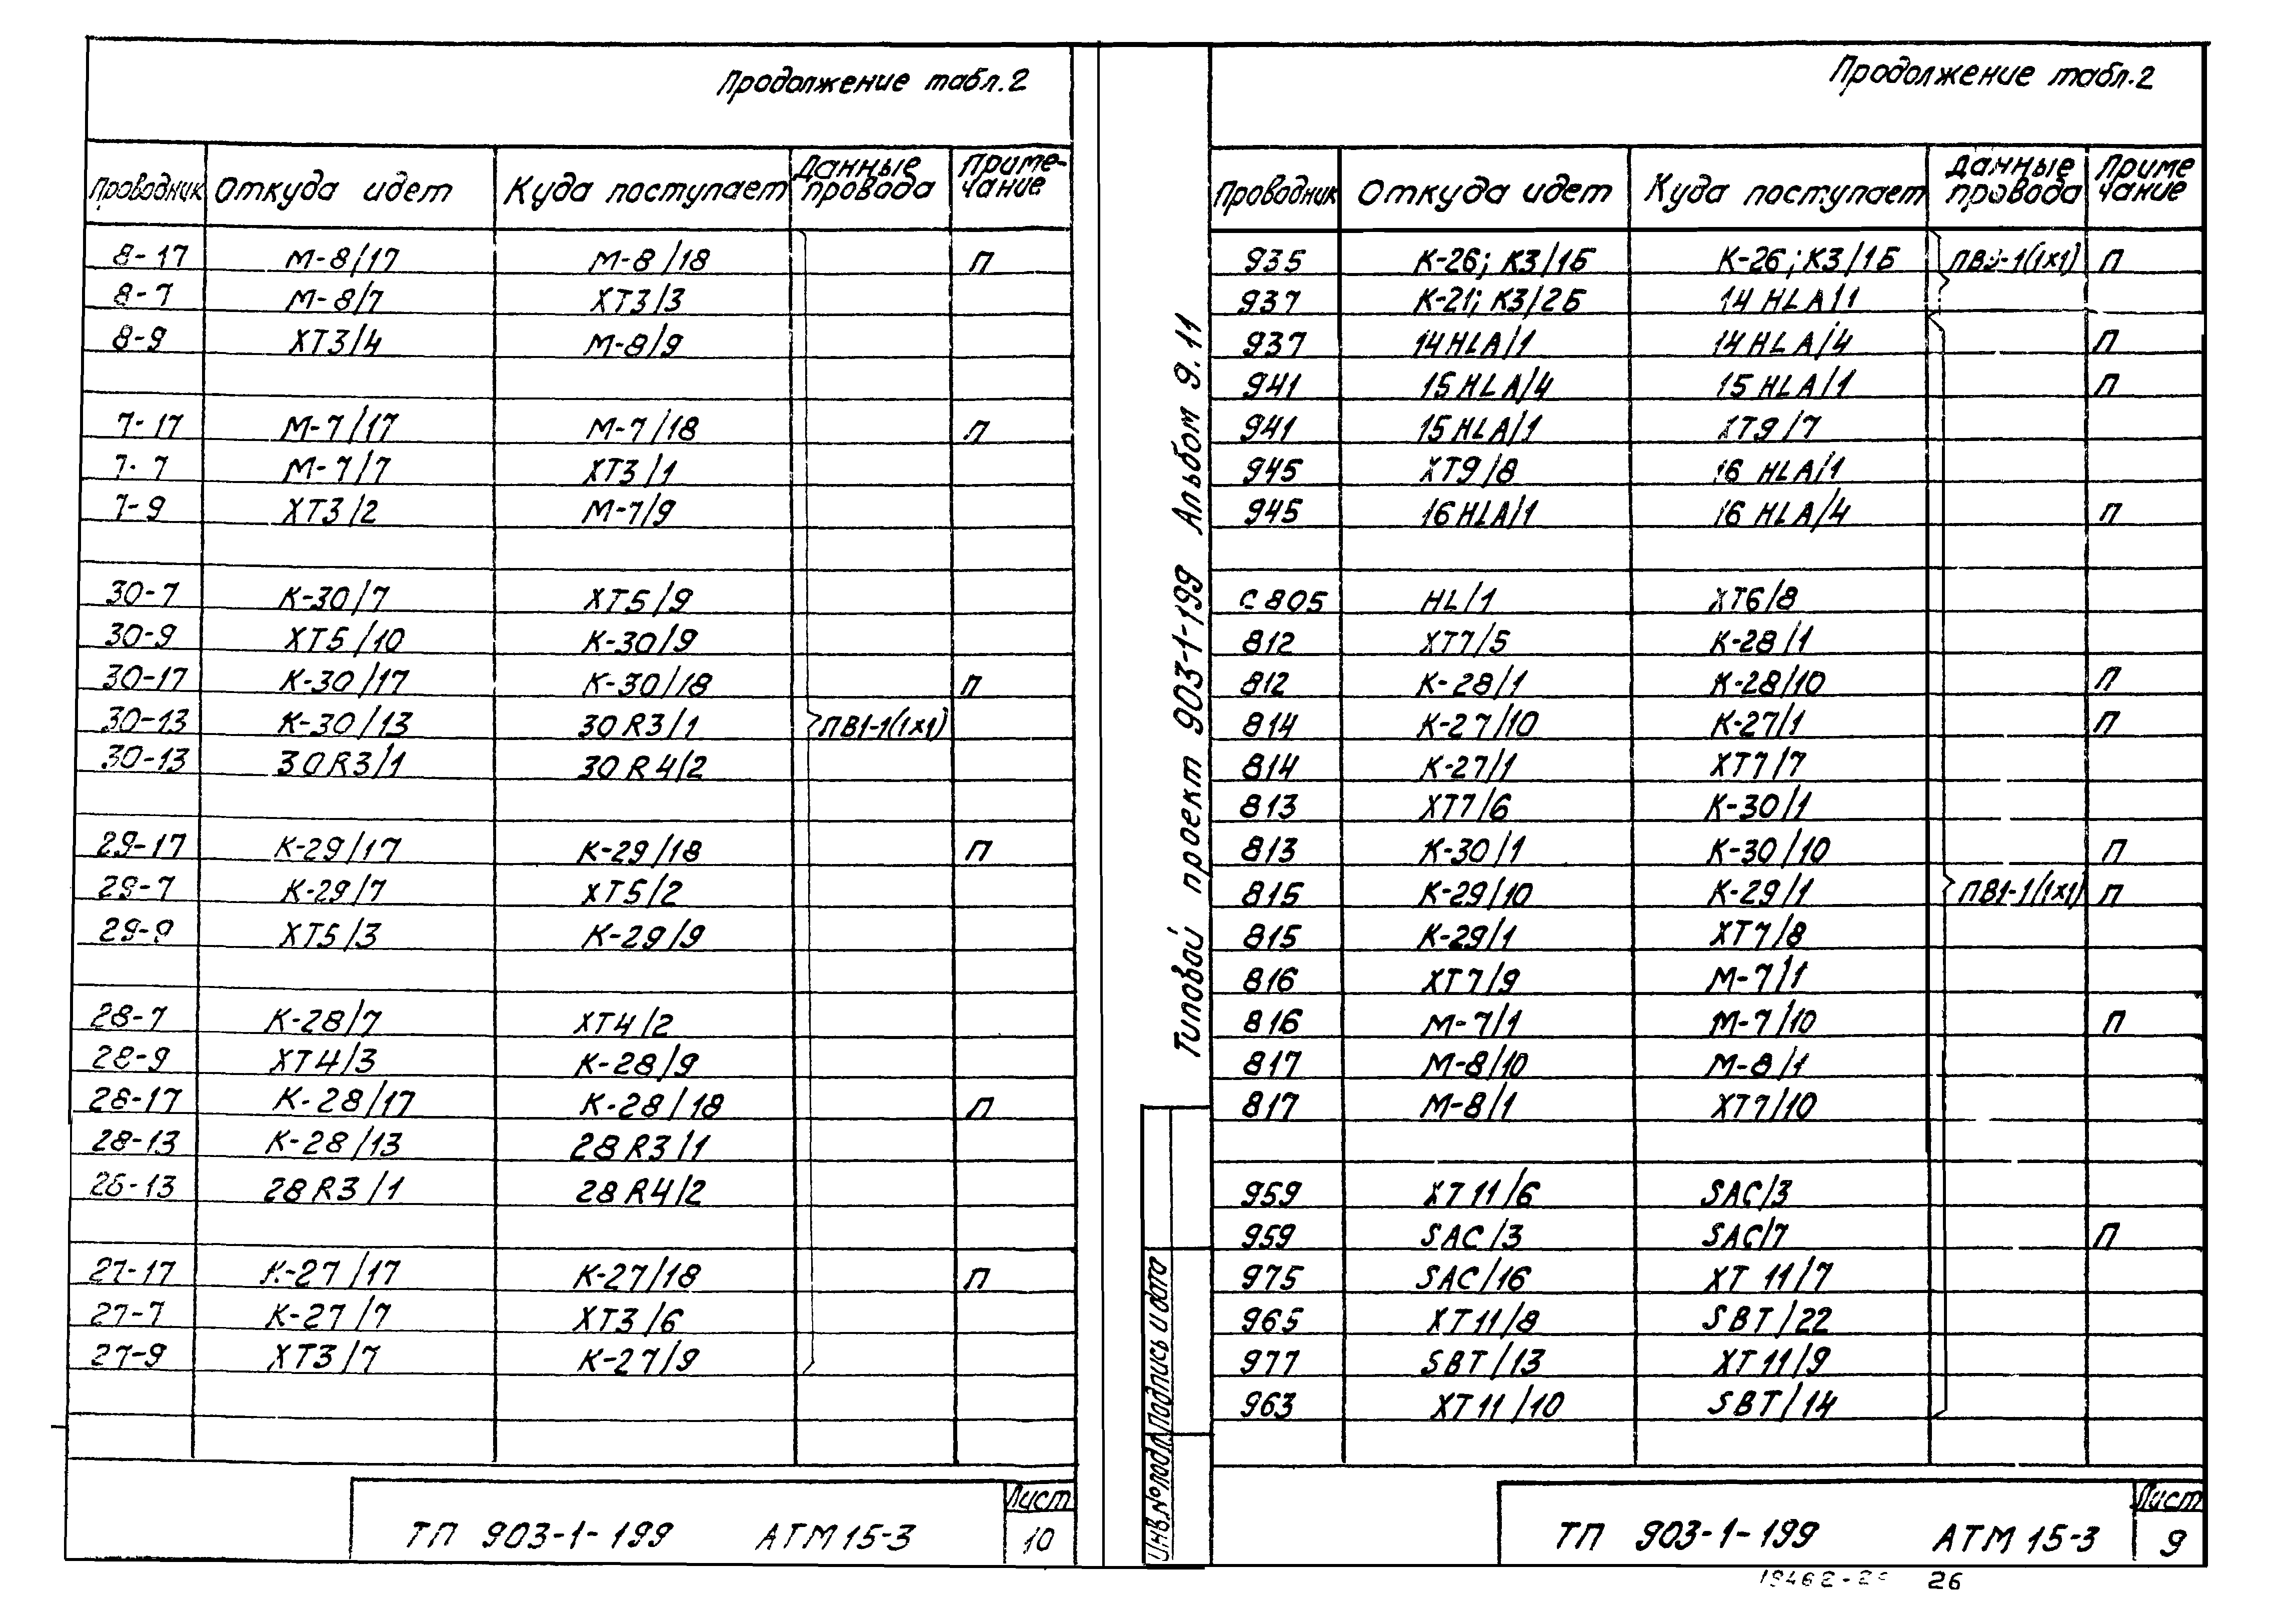 Продолжение табл.2
Проводник Откуда идет Куда поступает Данные провода Приме-чание
8-17 М-8/17 М-8/18 П
8-7 М-8/7 ХТ3/3
8-9 ХТ3/4 М-8/9
7-17 М-7/17 М-7/18 П
7-7 М-7/7 ХТ3/1
7-9 ХТ3/2 М-7/9
30-7 К-30/7 ХТ5/9
30-9 ХТ5/10 К-30/9
30-17 К-30/17 К-30/18 П
30-13 К-30/13 30R3/1 ПВ1-1(1х1)
30-13 30R3/1 30R4/2
29-17 К-29/17 К-29/18 П
29-7 К-29/7 ХТ5/2
29-9 ХТ5/3 К-29/9
28-7 К-28/7 ХТ4/2
28-9 ХТ4/3 К-28/9
28-17 К-28/17 К-28/18 П
28-13 К-28/13 28R3/1
28-13 28R3/1 28R4/2
27-17 К-27/17 К-27/18 П
27-7 К-27/7 ХТ3/6
27-9 ХТ3/7 К-27/9
ТП 903-1-199 АТМ15-3
Лист
10
Типовой проект 903-1-199 Альбом 9.11
Инв.№подл. Подпись и дата
Продолжение табл.2
Проводник Откуда идет Куда поступает Данные провода Приме чание
935 К-26; К3/1Б К-26; К3/1Б П
937 К-21; К3/2Б 14HLA/1
937 14HLA/1 14HLA/4 П
941 15HLA/4 15HLA/1 П
941 15HLA/1 ХТ9/7
945 ХТ9/8 16HLA/1
945 16HLA/1 16HLA/4 П
С805 HL/1 ХТ6/8
812 ХТ7/5 К-28/1
812 К-28/1 К-28/10 П
814 К-27/10 К-27/1 П
814 К-27/1 ХТ7/7
813 ХТ7/6 К-30/1
813 К-30/1 К-30/10 П
815 К-29/10 К-29/1 ПВ1-1(1х1) П
815 К-29/1 ХТ7/8
816 ХТ7/9 М-7/1
816 М-7/1 М-7/10 П
817 М-8/10 М-8/1
817 М-8/1 ХТ7/10
959 ХТ11/6 SAC/3
959 SAC/3 SAC/7 П
975 SAC/16 ХТ 11/7
965 ХТ11/8 SBT/22
977 SBT/13 ХТ11/9
963 ХТ11/10 SBT/14
ТП 903-1-199 АТМ15-3
Лист
9
26